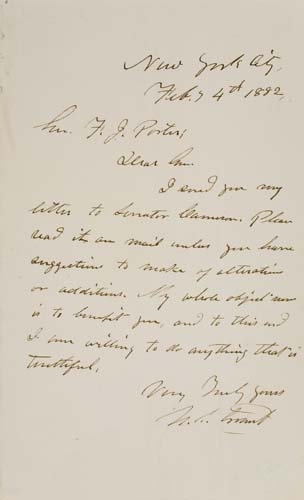 New York City,
Feb.y 4th 1882
Gen. F. J. Porter;
Dear Gen.
I send you my
letter to Senator Cameron. Please
read it and mail unless you have
suggestions to make of alterations
or additions. My whole object now
is to benefit you, and to this end
I am willing to do anything that is
truthful.
Very Truly Yours
U. S. Grant